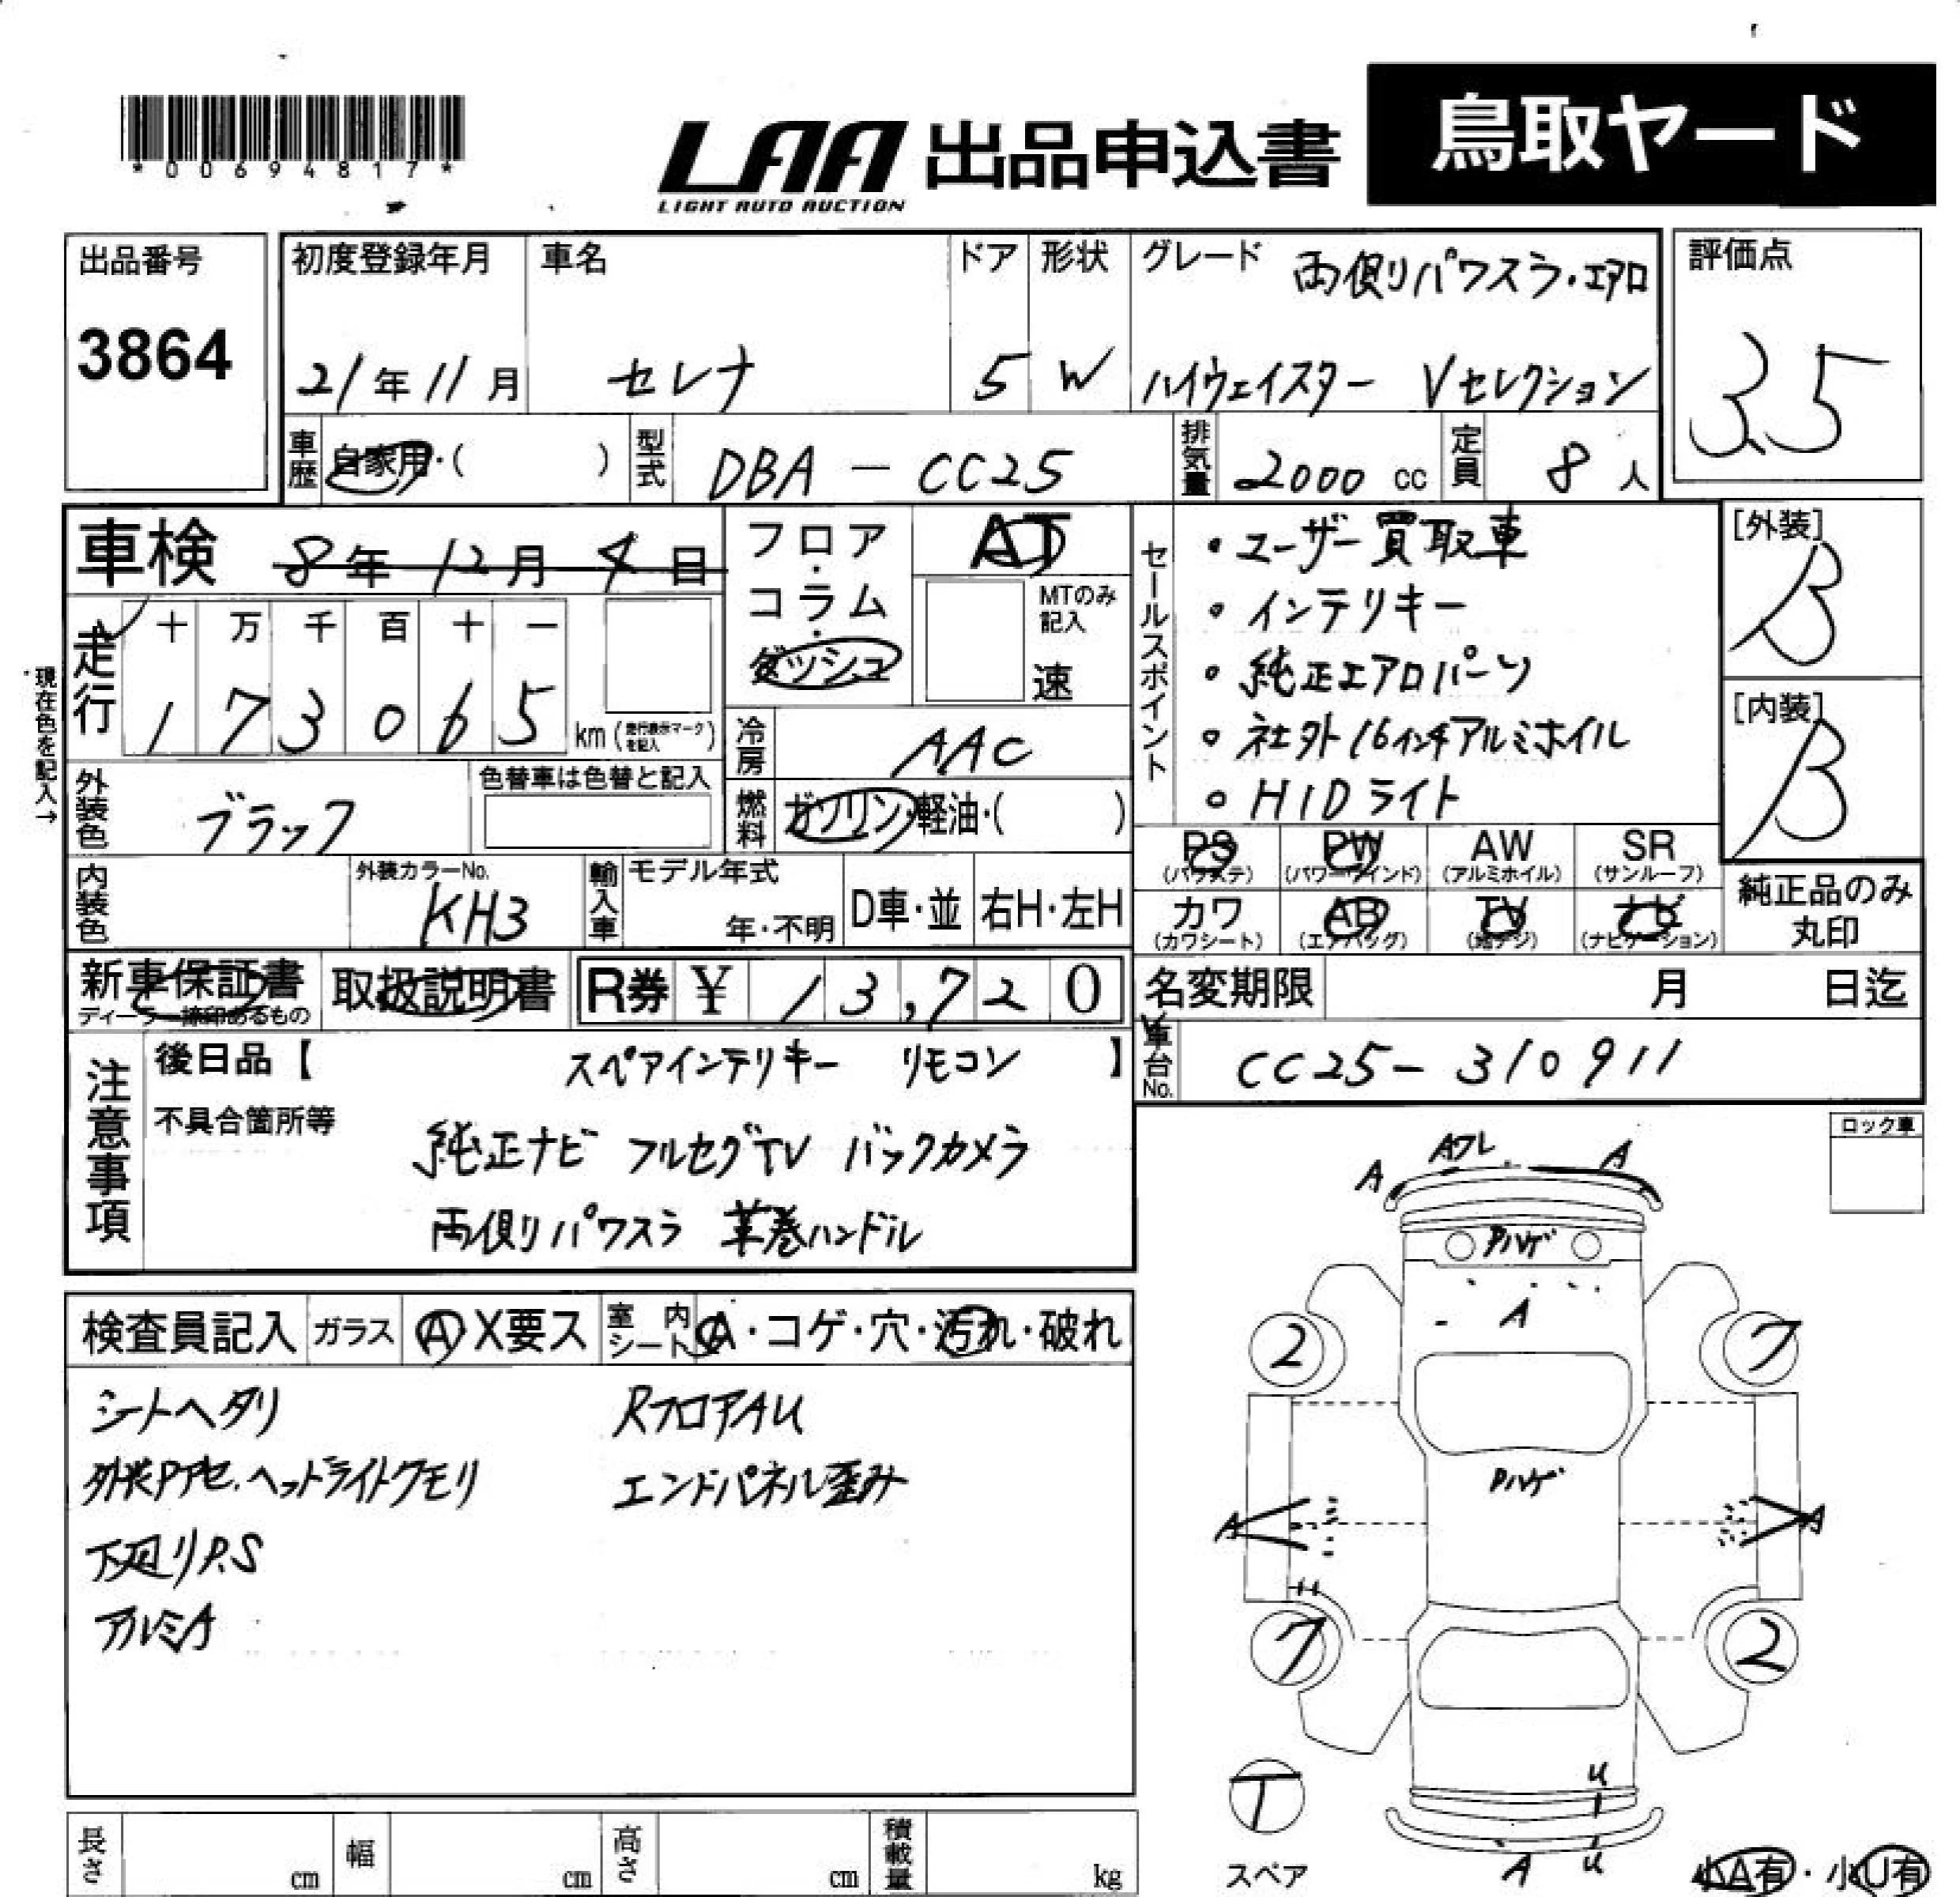 *00694817*
LAA 出品申込書 鳥取ヤード
LIGHT AUTO AUCTION
出品番号 3864
初度登録年月 21年11月
車名 セレナ
ドア 5
形状 W
グレード 両側パワスラ・エアロ
ハイウェイスター Vセレクション
評価点 3.5
車歴 自家用・( )
型式 DBA-CC25
排気量 2000 cc
定員 8 人
車検 8年12月4日
フロア・コラム・ダッシュ
AT
MTのみ記入
速
走行 十 万 千 百 十 一
1 7 3 0 6 5 km (走行表示マークを記入)
現在色を記入→
冷房 AAC
燃料 ガソリン・軽油・( )
外装色 ブラック
色替車は色替と記入
内装色
外装カラーNo. KH3
輸入車 モデル年式 年・不明 D車・並 右H・左H
セールスポイント
・ユーザー買取車
・インテリキー
・純正エアロパーツ
・社外16インチアルミホイル
・HIDライト
[外装] B
[内装] B
PS (パワステ) PW (パワーウインド) AW (アルミホイル) SR (サンルーフ)
カワ (カワシート) AB (エアバッグ) TV (地デジ) ナビ (ナビゲーション)
純正品のみ丸印
新車保証書 ディーラー捺印あるもの
取扱説明書
R券 ¥ 13,720
名変期限 月 日迄
車台No. CC25-310911
注意事項
後日品【 スペアインテリキー リモコン 】
不具合箇所等
純正ナビ フルセグTV バックカメラ
両側パワスラ 革巻ハンドル
ロック車
検査員記入 ガラス A X要ス 室内シート A・コゲ・穴・汚れ・破れ
シートヘタリ RフロアAU
外装Pアセ.ヘッドライトクモリ エンドパネル歪み
下廻リP.S
アルミA
A Aワレ A
Pハゲ
A
2 7
Pハゲ
A A
7 2
U
T
スペア
A U
小A有・小U有
長さ cm 幅 cm 高さ cm 積載量 kg